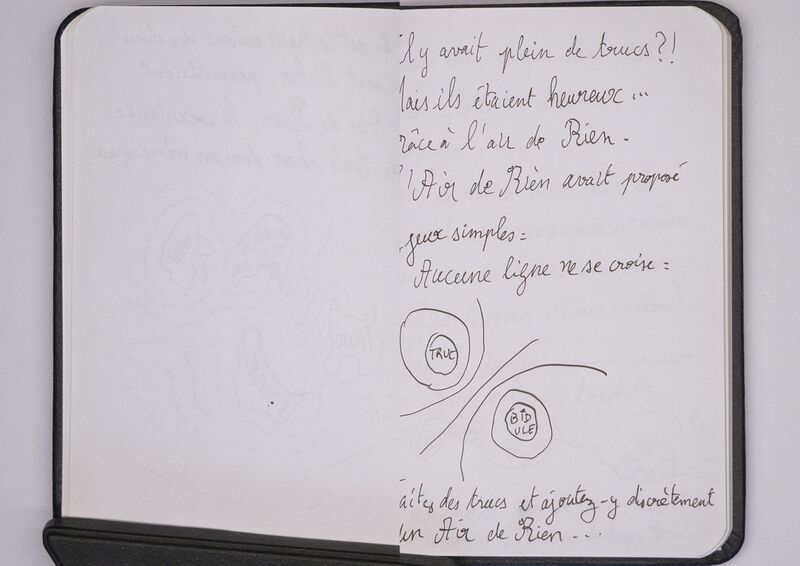 il y avait plein de trucs?!
ais ils étaient heureux ...
râce à l'air de Rien.
l'Air de Rien avait proposé
jeux simples:
Aucune ligne ne se croise:
TRUC
BID
ULE
aites des trucs et ajoutez-y discrètement
un Air de Rien ...